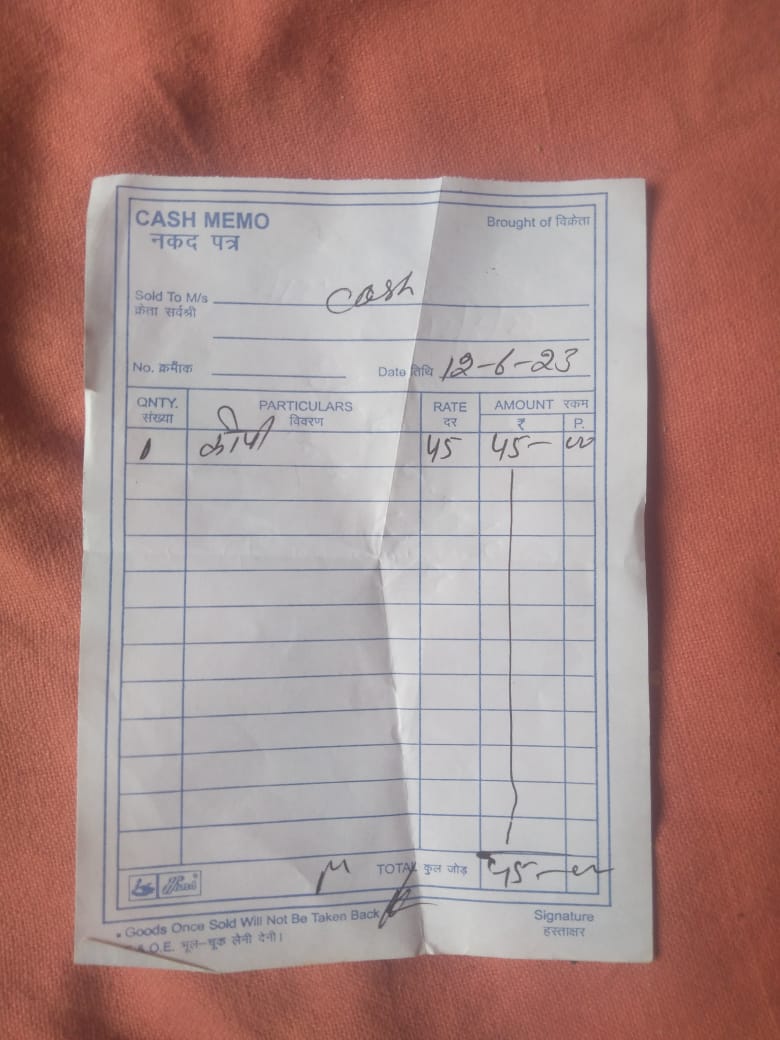 CASH MEMO
नकद पत्र
Brought of विक्रेता
Sold To M/s cash
क्रेता सर्वश्री
No. क्रमाँक Date तिथि 12-6-23
QNTY. PARTICULARS RATE AMOUNT रकम
संख्या विवरण दर ₹ P.
1 कॉपी 45 45- 00
TOTAL कुल जोड़ 45-00
• Goods Once Sold Will Not Be Taken Back
& O.E. भूल-चूक लेनी देनी।
Signature
हस्ताक्षर